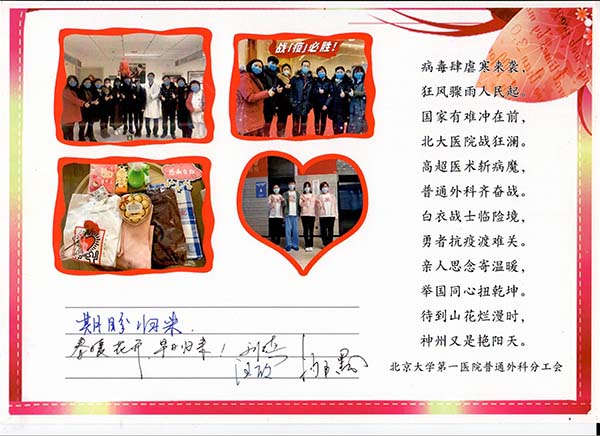 战"疫"必胜！
病毒肆虐寒来袭，
狂风骤雨人民起。
国家有难冲在前，
北大医院战狂澜。
高超医术斩病魔，
普通外科齐奋战。
白衣战士临险境，
勇者抗疫渡难关。
亲人思念寄温暖，
举国同心扭乾坤。
待到山花烂漫时，
神州又是艳阳天。
北京大学第一医院普通外科分工会
期盼归来.
春暖花开,早日归来！